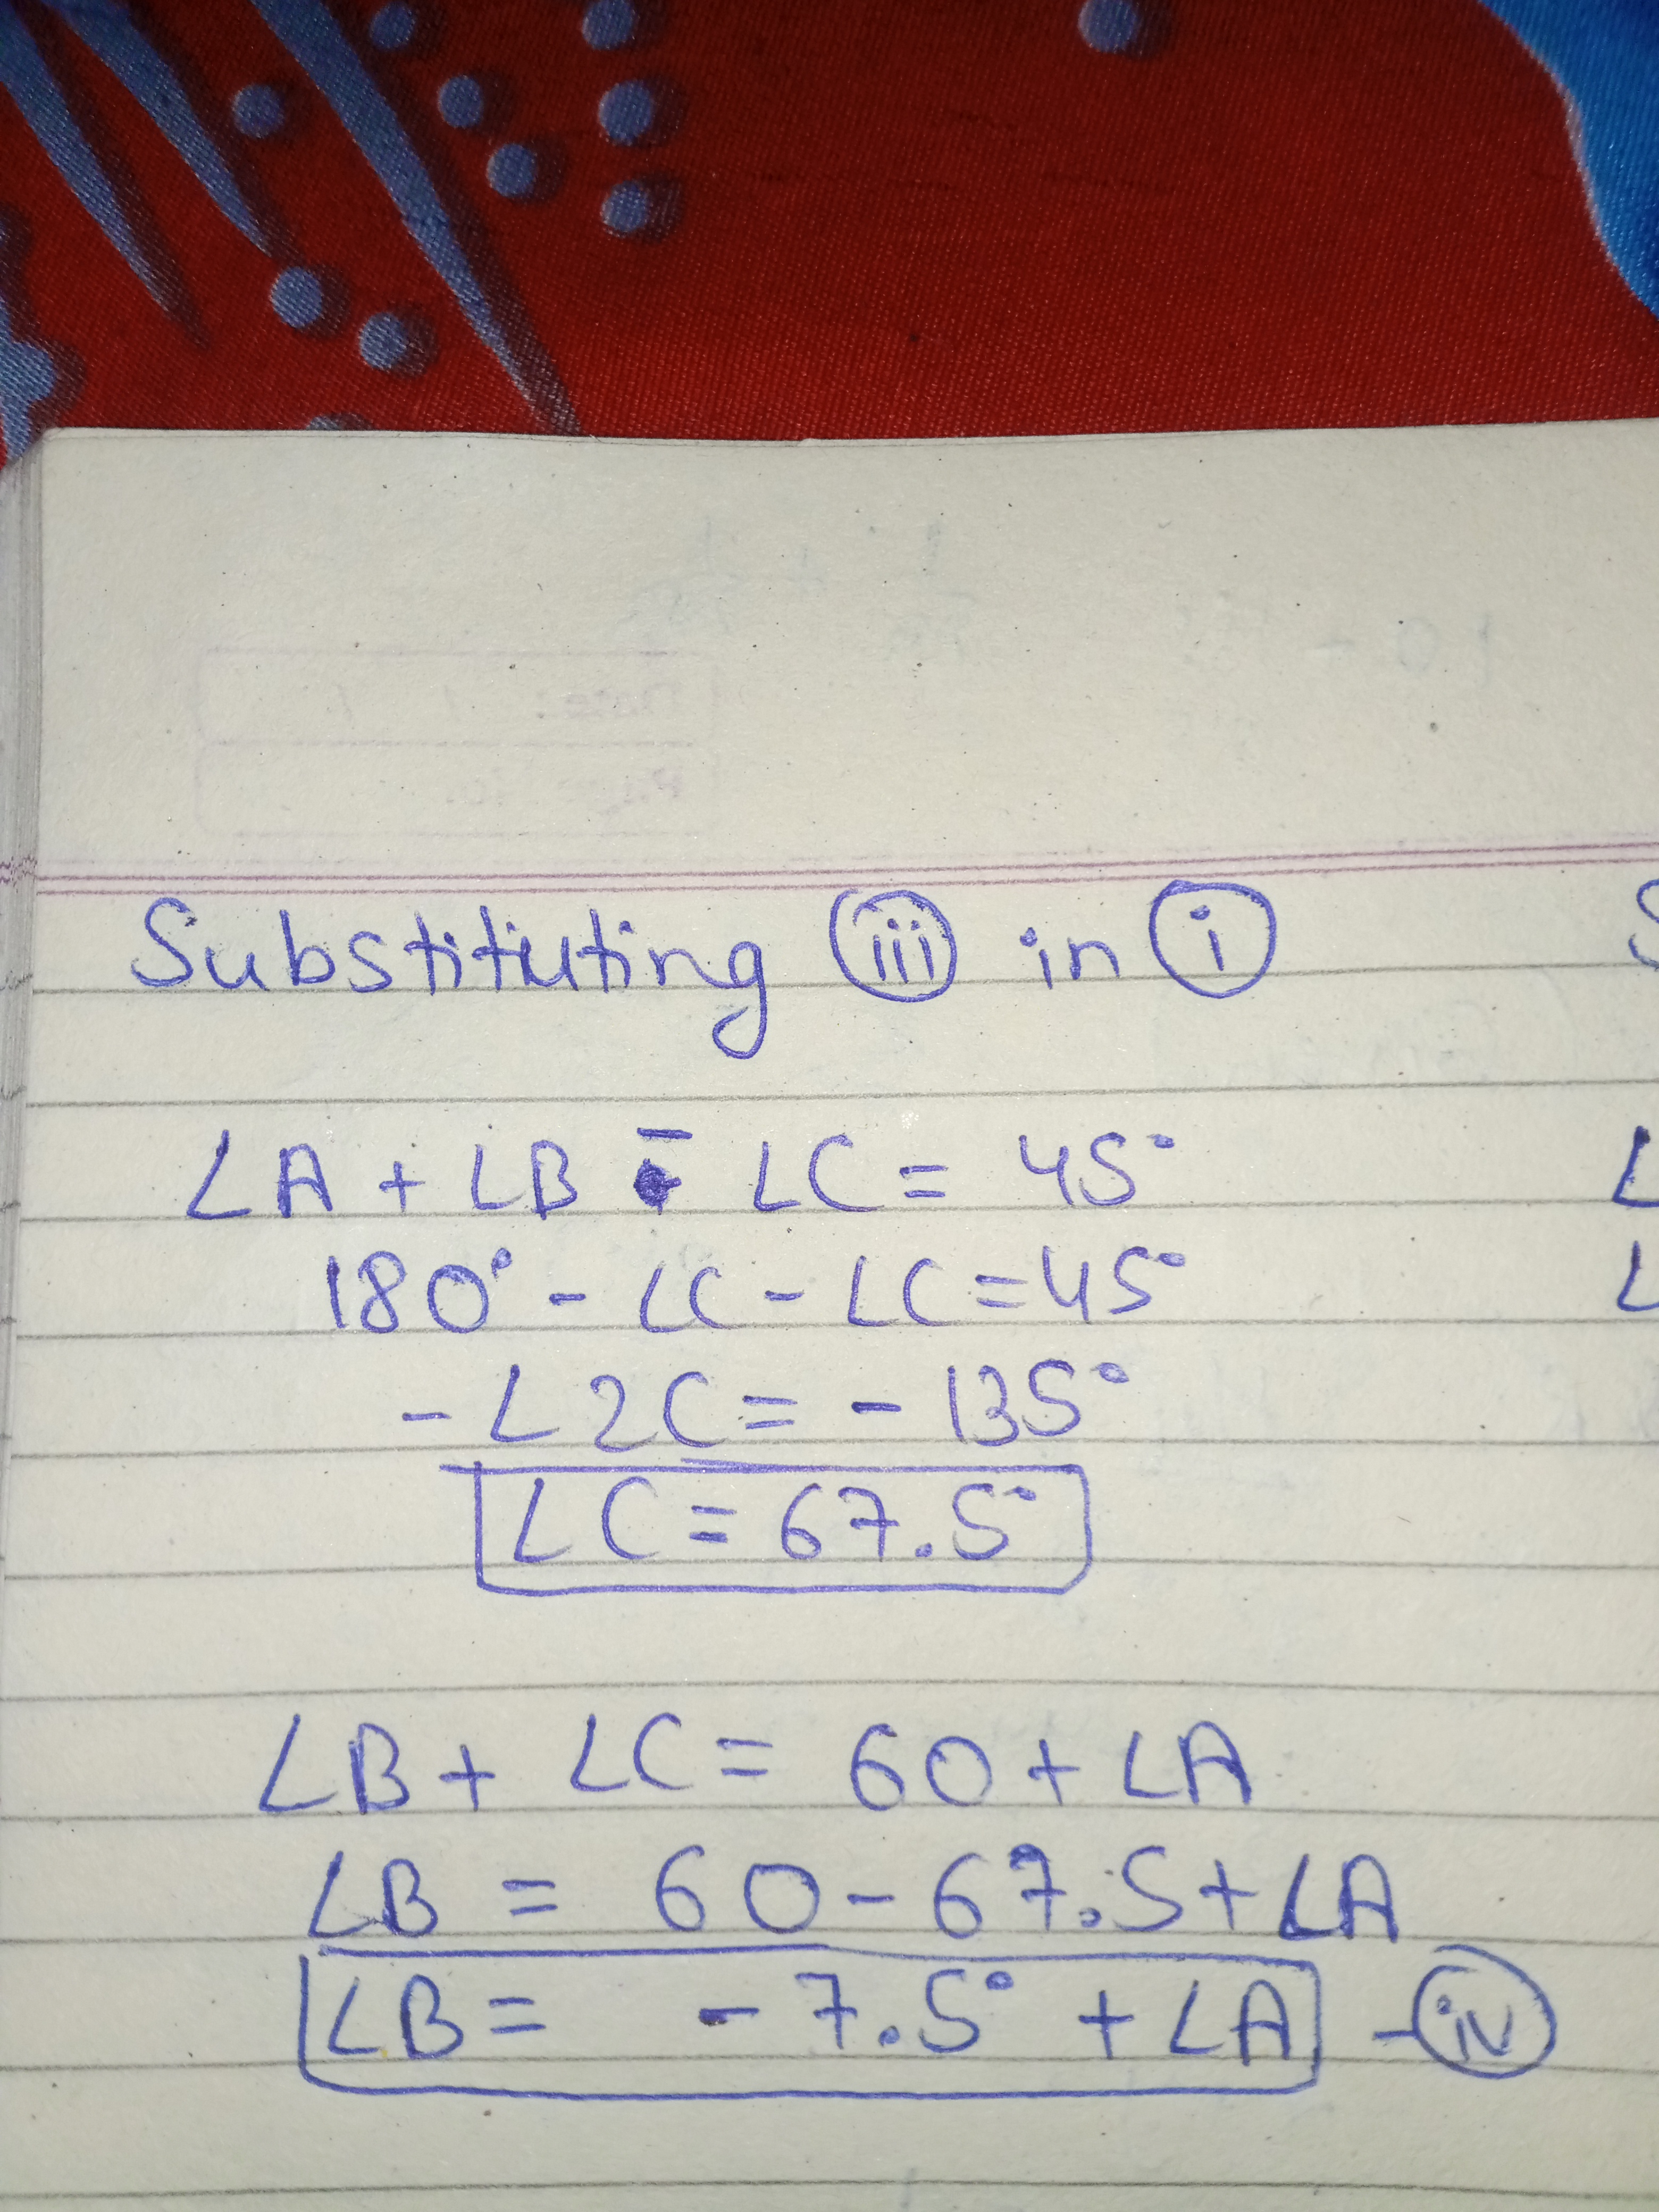 Substituting (iii) in (i)
∠A + ∠B - ∠C = 45°
180° - ∠C - ∠C = 45°
- ∠2C = - 135°
∠C = 67.5°
∠B + ∠C = 60 + ∠A
∠B = 60 - 67.5 + ∠A
∠B = - 7.5° + ∠A - (iv)